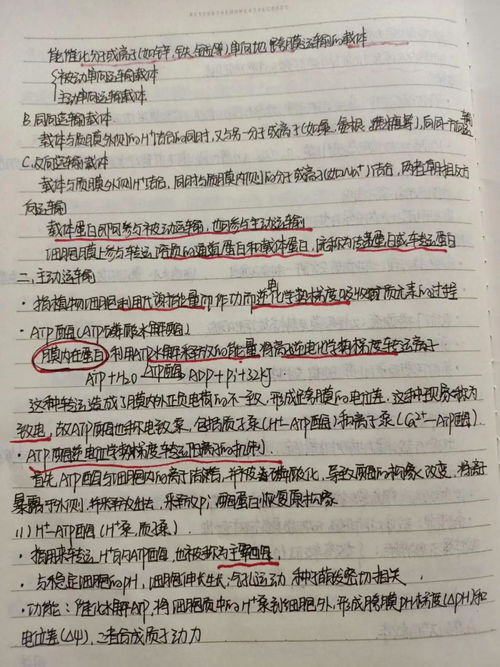 能催化分子或离子(如锌,铁,钾等)单向地跨质膜运输的载体
被动单向运输载体
主动单向运输载体
B.同向运输载体
载体与质膜外侧的H⁺结合的同时,又与另一分子或离子(如氯,氨根,蔗糖等),同向
C.反向运输载体
载体与质膜外侧H⁺结合,同时与质膜内侧的分子或离子(如Na⁺)结合,两者朝相反方
向运输
载体蛋白即可参与被动运输,也可参与主动运输
细胞膜上参与转运溶质的通道蛋白和载体蛋白,统称为传递蛋白或转运蛋白
二、主动运输
·指植物细胞利用代谢能量 作功而逆电化学势梯度吸收矿质元素的过程
·ATP酶(ATP磷酸水解酶)
膜内在蛋白 利用ATP水解释放的能量,将离子逆电化学势梯度转运离子
ATP+H₂O ATP酶 ADP+Pi+32kJ
这种转运造成了膜内外正负电荷的不一致,形成跨膜的电位差,这种现象称为
致电,故ATP酶也称电致泵,包括质子泵(H⁺-ATP酶)和离子泵(Ca²⁺-ATP酶)
·ATP酶逆电化学势梯度转运阳离子的机制
首先,ATP酶与细胞内的离子结合,并被磷酸化,导致酶的构象改变,将离子
暴露于外侧,并释放出去,释放Pi,酶蛋白恢复原构象
(1)H⁺-ATP酶(H⁺泵,质泵)
·指用来转运H⁺的ATP酶,也被称为主宰酶
·与稳定细胞的pH,细胞伸长生长,气孔运动,种子萌发密切相关
·功能:催化水解ATP,将细胞质中的H⁺泵到细胞外,形成跨膜PH梯度(△PH)和
电位差(△Ψ),二者合成质子动力